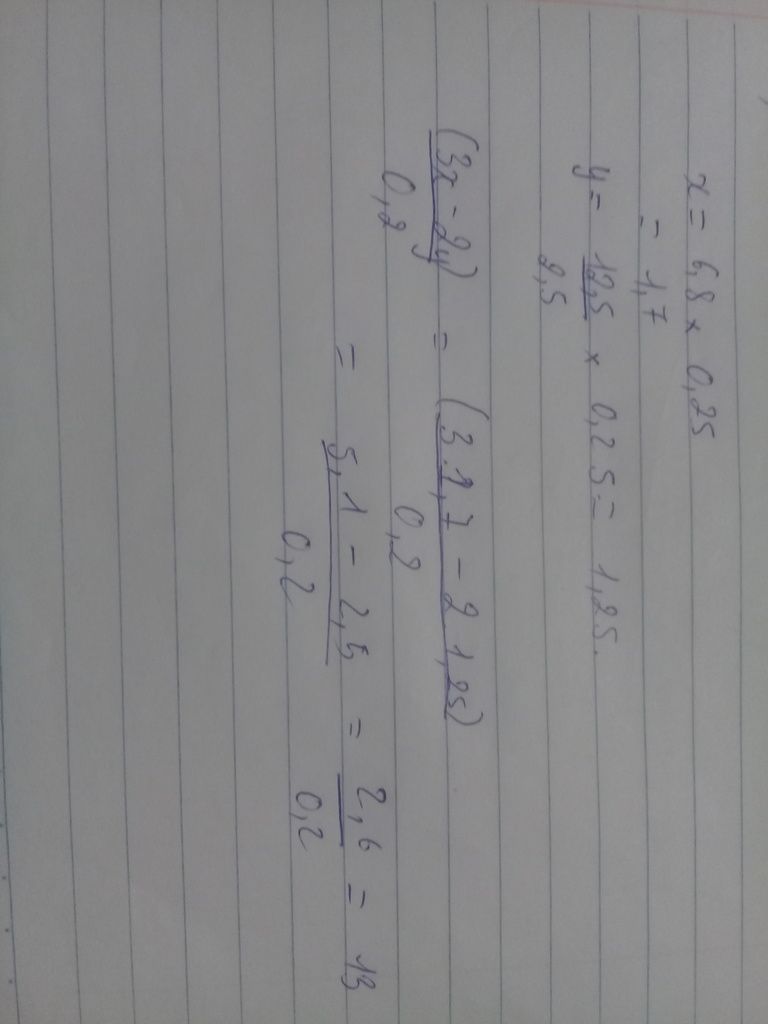 x = 6,8 x 0,25
= 1,7
y = 12,5/2,5 x 0,25 = 1,25.
(3x - 2y)/0,2 = (3.1,7 - 2 1,25)/0,2
= 5,1 - 2,5/0,2 = 2,6/0,2 = 13